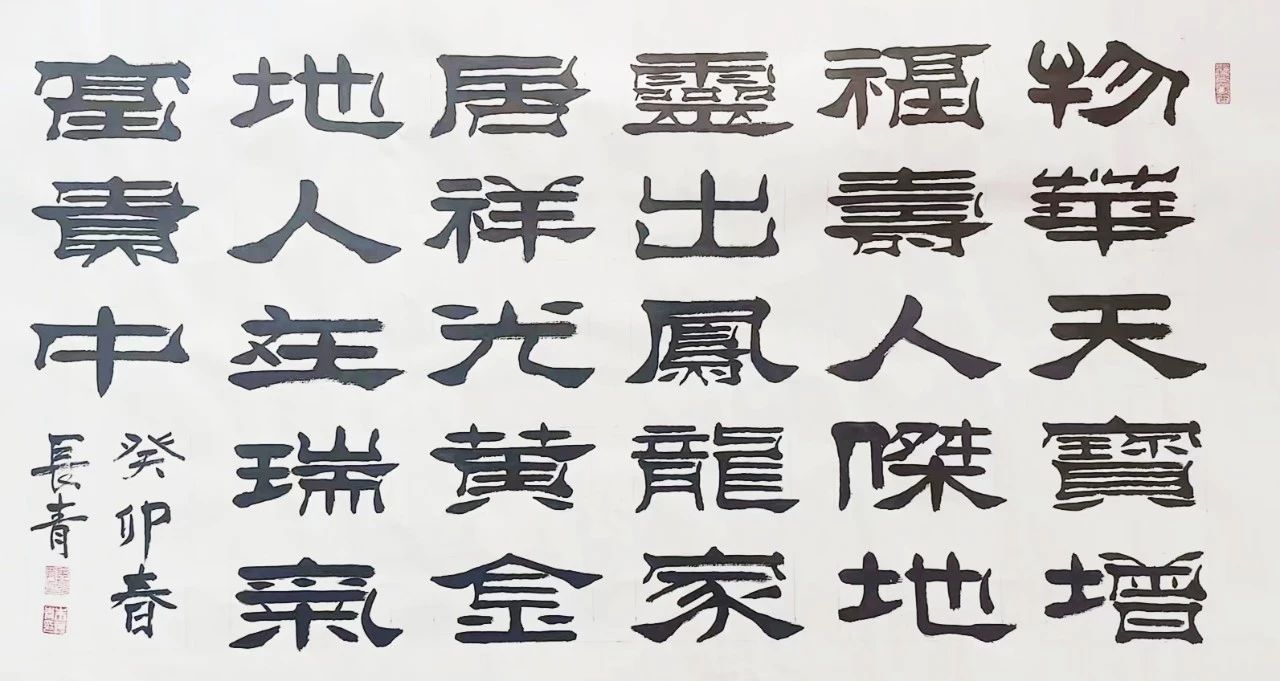 物華天寶增
福壽人傑地
靈出鳳龍家
居祥光黃金
地人在瑞氣
富貴中
癸卯春
長青